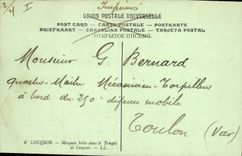 Imprimés
UNION POSTALE UNIVERSELLE
POST CARD — CARTE POSTALE — POSTKARTE
BRIEFKAART — CARTOLINA POSTALE — TARJETA POSTAL
ОТКРЫТОЕ ПИСЬМО.
Monsieur G. Bernard
Quartier-Maître Mécanicien-Torpilleur
à bord du 250 - défense mobile
Toulon (Var)
6 LOUQSOR. — Mosquée bâtie dans le Temple
de Louqsor. — LL.